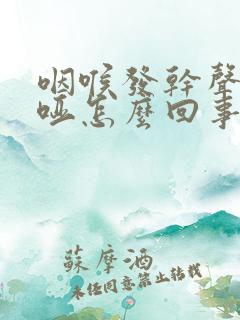 咽喉發幹聲
啞怎麼回事
蘇摩酒
未经同意禁止转载